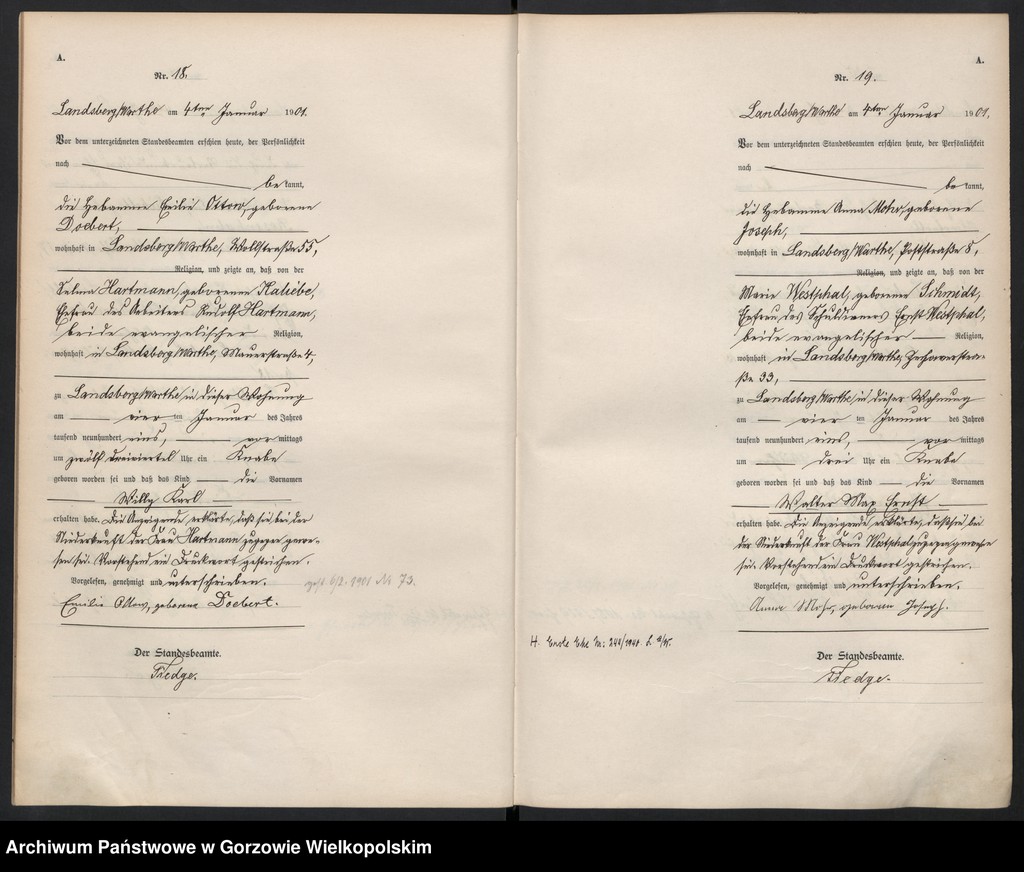 A.
Nr. 18.
Landsberg/Warthe am 4ten Januar 1901.
Vor dem unterzeichneten Standesbeamten erschien heute, der Persönlichkeit
nach
bekannt,
die Hebamme Emilie Ottow, geborene
Doebert,
wohnhaft in Landsberg/Warthe, Wollstraße 55,
Religion, und zeigte an, daß von der
Selma Hartmann, geborenen Kaliebe,
Ehefrau des Arbeiters Rudolf Hartmann,
beide evangelischer Religion,
wohnhaft in Landsberg/Warthe, Mauerstraße 4,
zu Landsberg/Warthe, in dieser Wohnung
am vierten Januar des Jahres
tausend neunhundert eins, vormittags
um zwölf dreiviertel Uhr ein Knabe
geboren worden sei und daß das Kind die Vornamen
Willy Karl
erhalten habe. Die Anzeigende erklärte, daß sie bei der
Niederkunft der Frau Hartmann zugegen gewe-
sen sei. Vorstehend ein Druckwort gestrichen.
Vorgelesen, genehmigt und unterschrieben.
Emilie Ottow, geborene Doebert.
Der Standesbeamte.
Fredge.
gest. 6/2. 1901 Nr 73.
A.
Nr. 19.
Landsberg/Warthe am 4ten Januar 1901.
Vor dem unterzeichneten Standesbeamten erschien heute, der Persönlichkeit
nach
bekannt,
die Hebamme Anna Mohr, geborene
Joseph,
wohnhaft in Landsberg/Warthe, Poststraße 8,
Religion, und zeigte an, daß von der
Marie Westphal, geborenen Schmidt,
Ehefrau des Schuldieners Ernst Westphal,
beide evangelischer Religion,
wohnhaft in Landsberg/Warthe, Zechowerstra-
ße 33,
zu Landsberg/Warthe, in dieser Wohnung
am vierten Januar des Jahres
tausend neunhundert eins, vormittags
um drei Uhr ein Knabe
geboren worden sei und daß das Kind die Vornamen
Walter Max Ernst
erhalten habe. Die Anzeigende erklärte, daß sie bei
der Niederkunft der Frau Westphal zugegen gewesen
sei. Vorstehend ein Druckwort gestrichen.
Vorgelesen, genehmigt und unterschrieben.
Anna Mohr, geborene Joseph.
H. Erste Ehe Nr.
Der Standesbeamte.
Fredge.
Archiwum Państwowe w Gorzowie Wielkopolskim